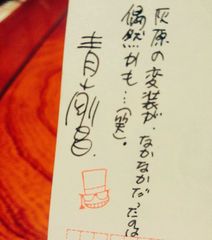 灰原の変装が、なかなかだったのは
偶然かも…(笑)。
青山剛昌.